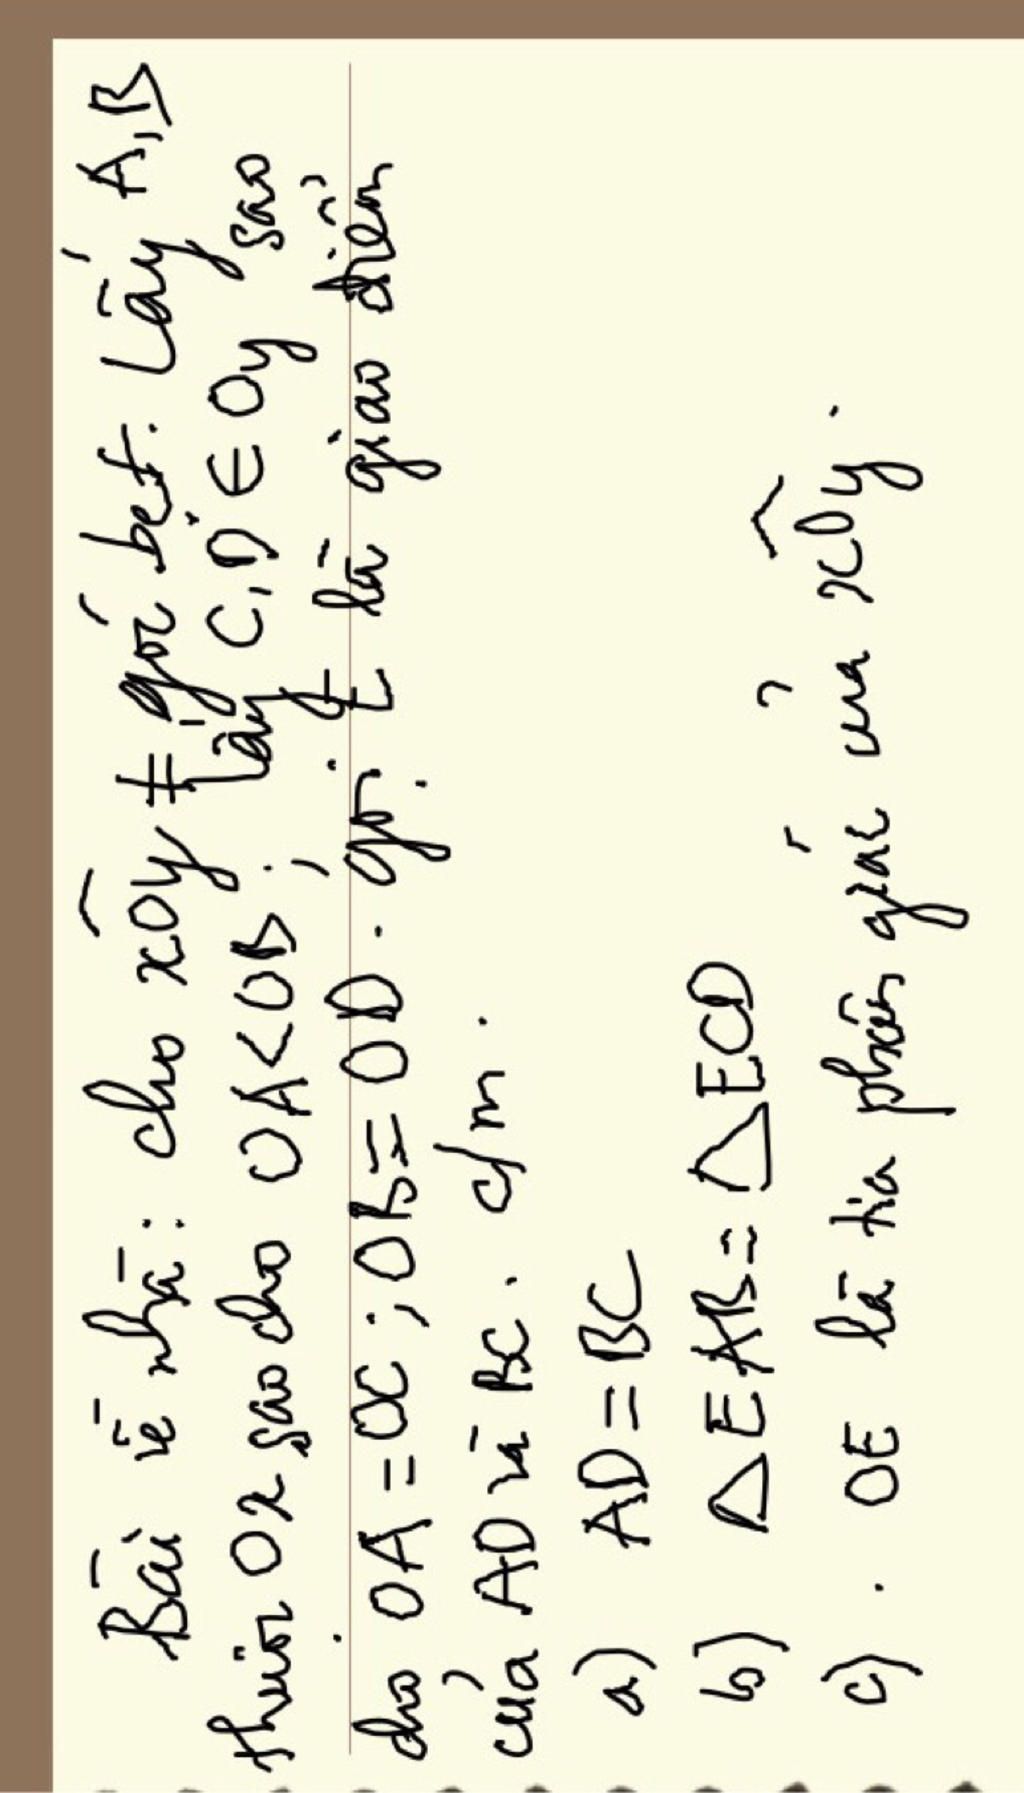 Bài về nhà: cho xÔy ≠ góc bẹt. Lấy A, B
thuộc Ox sao cho OA < OB; lấy C, D ∈ Oy sao
cho OA = OC; OB = OD. gọi E là giao điểm
của AD và BC. c/m.
a) AD = BC
b) ΔEAB = ΔECD
c). OE là tia phân giác của xÔy.